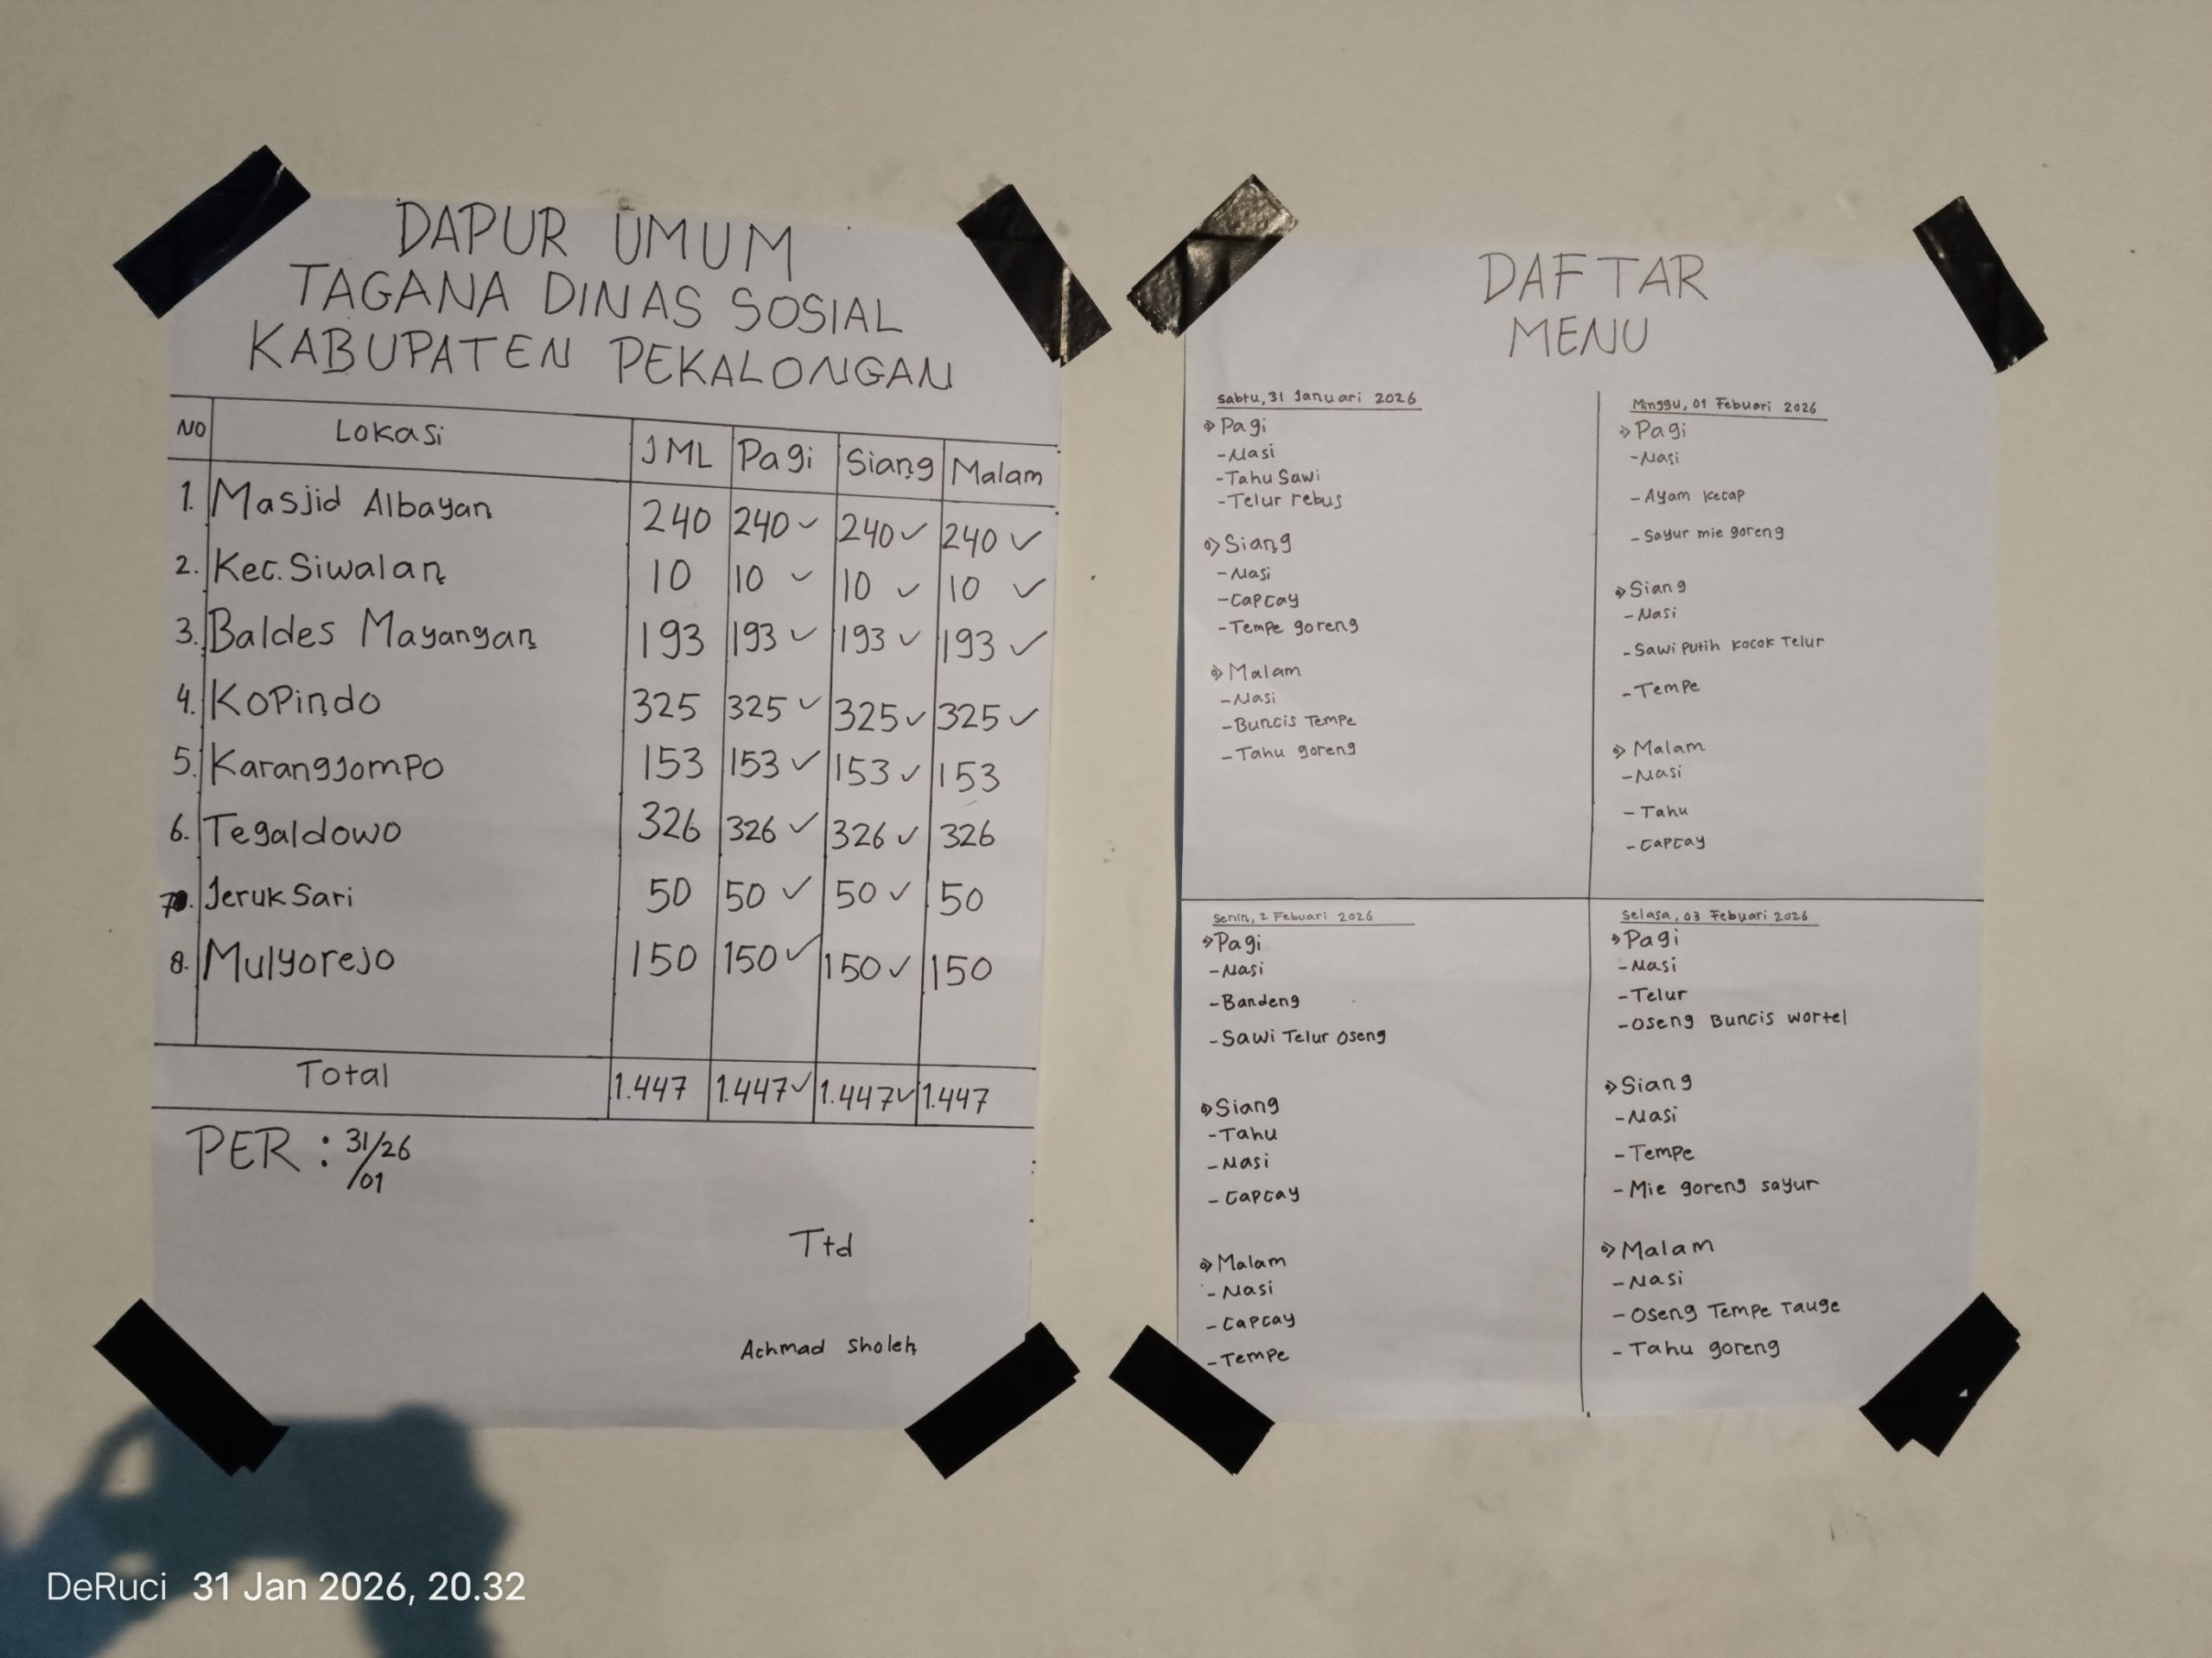 DAPUR UMUM
TAGANA DINAS SOSIAL
KABUPATEN PEKALONGAN
NO Lokasi JML Pagi Siang Malam
1. Masjid Albayan 240 240 ✓ 240 ✓ 240 ✓
2. Kec. Siwalan 10 10 ✓ 10 ✓ 10 ✓
3. Baldes Mayangan 193 193 ✓ 193 ✓ 193 ✓
4. KOPindo 325 325 ✓ 325 ✓ 325 ✓
5. KarangJompo 153 153 ✓ 153 ✓ 153
6. Tegaldowo 326 326 ✓ 326 ✓ 326
7. Jeruk Sari 50 50 ✓ 50 ✓ 50
8. Mulyorejo 150 150 ✓ 150 ✓ 150
Total 1.447 1.447 ✓ 1.447 ✓ 1.447
PER : 31/26
/01
Ttd
Achmad Sholeh
DAFTAR
MENU
Sabtu, 31 Januari 2026
Pagi
- Nasi
- Tahu Sawi
- Telur rebus
Siang
- Nasi
- Capcay
- Tempe goreng
Malam
- Nasi
- Buncis Tempe
- Tahu goreng
Minggu, 01 Febuari 2026
Pagi
- Nasi
- Ayam Kecap
- Sayur mie goreng
Siang
- Nasi
- Sawi Putih Kocok Telur
- Tempe
Malam
- Nasi
- Tahu
- Capcay
Senin, 2 Febuari 2026
Pagi
- Nasi
- Bandeng
- Sawi Telur Oseng
Siang
- Tahu
- Nasi
- Capcay
Malam
- Nasi
- Capcay
- Tempe
Selasa, 03 Febuari 2026
Pagi
- Nasi
- Telur
- Oseng Buncis wortel
Siang
- Nasi
- Tempe
- Mie goreng sayur
Malam
- Nasi
- Oseng Tempe Tauge
- Tahu goreng
DeRuci 31 Jan 2026, 20.32